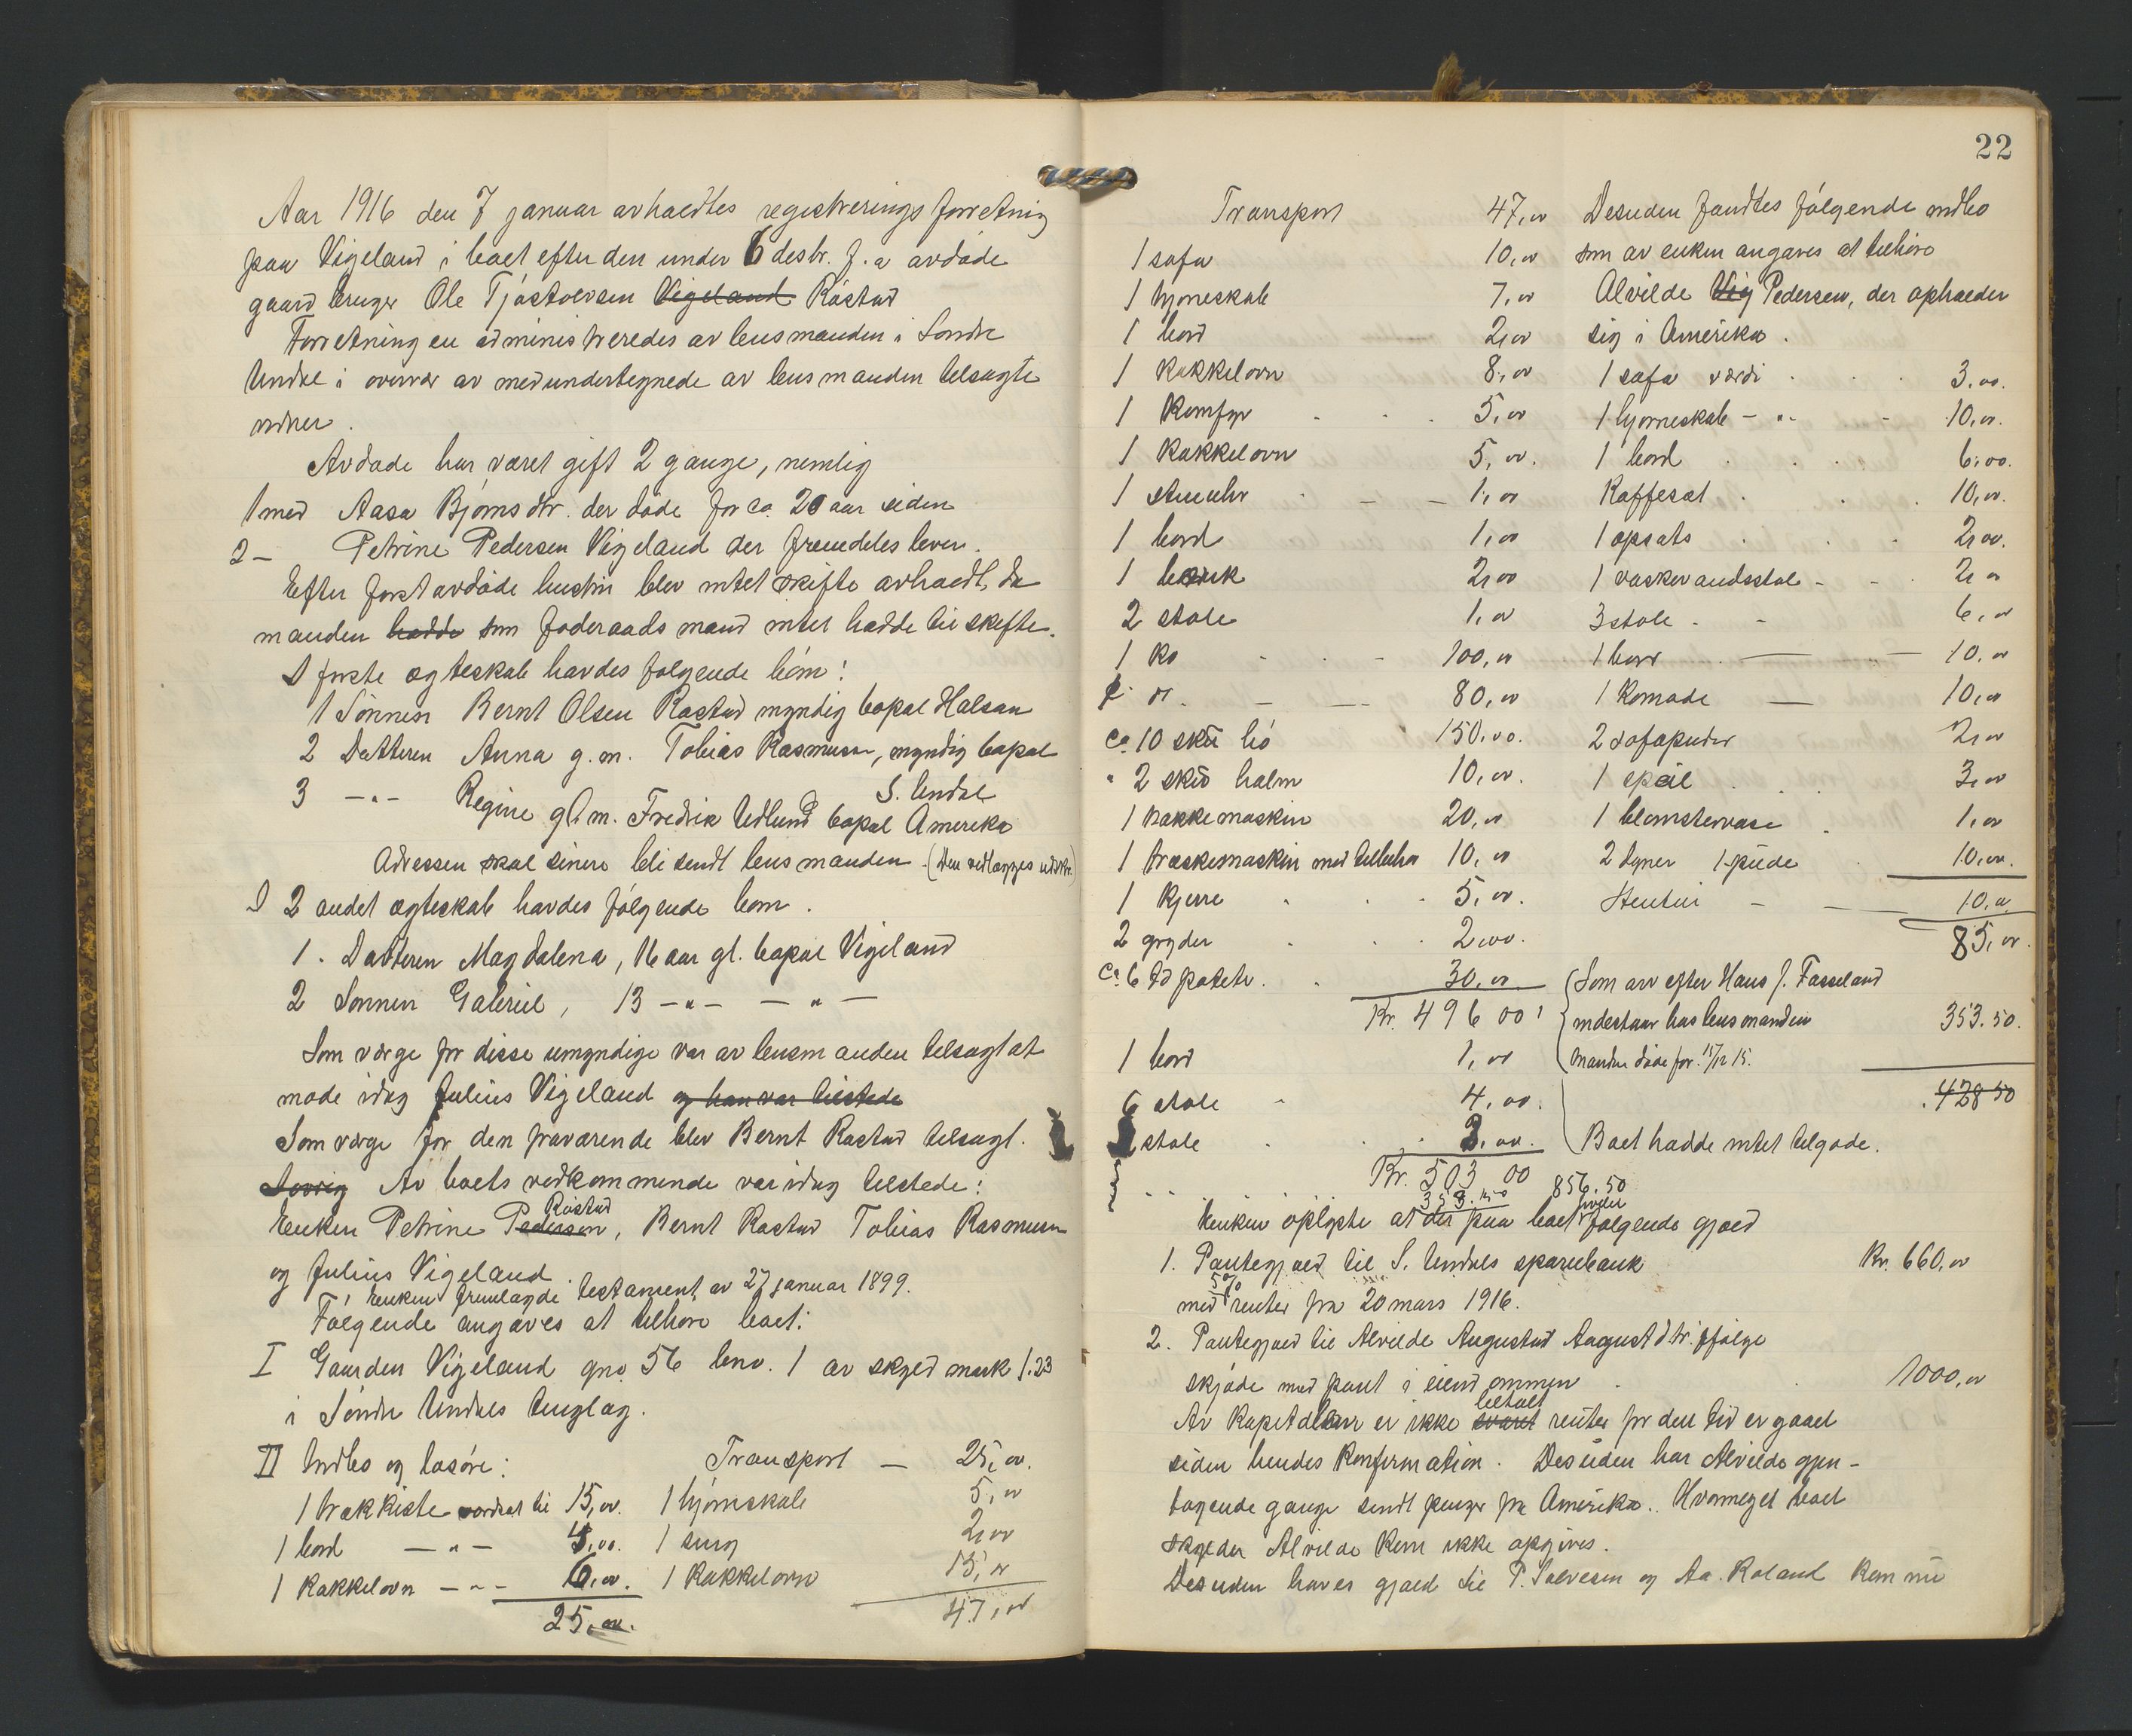 Aar 1916 den 7 januar avholdtes registrerings forretning
paa Vigeland i boet efter den under 6 desbr. f.a avdøde
gaardbruger Ole Tjøstolvsen Vigeland Røstad
Forretningen administreredes av lensmanden i Søndre
Undal i overvær av medundertegnede av lensmanden tilsagte
vidner.
Avdøde har været gift 2 gange, nemlig
1 med Aasa Bjørnsdtr. der døde for ca. 20 aar siden
2 — Petrine Pedersen Vigeland der fremdeles lever.
Efter først avdøde hustru blev intet skifte avholdt, da
manden hadde som føderaads mand intet hadde til skifte.
I første ægteskab havdes følgende børn:
1 Sønnen Bernt Olsen Røstad myndig bopæl Halsaa
2 Datteren Anna g.m. Tobias Rasmusen, myndig bopæl
S. Undal
3 —"— Regine gl. m. Fredrik Edlund bopæl Amerika
Adressen skal sinere bli sendt lensmanden. (Den vedlægges utskr.)
I 2 andet ægteskab havdes følgende børn.
1. Datteren Magdalena, 16 aar gl. bopæl Vigeland
2 Sønnen Gabriel, 13 —"— —"—
Som værge for disse umyndige var av lensmanden tilsagt at
møde idag Julius Vigeland og han var tilstede
Som værge for den fraværende blev Bernt Røstad tilsagt.
Forøvrig Av boets vedkommende var idag tilstede:
Røstad
Enken Petrine Pedersen, Bernt Røstad Tobias Rasmusen
og Julius Vigeland.
Enken fremlagde testament av 27 januar 1899.
Følgende angaves at tilhøre boet:
I Gaarden Vigeland gno. 56 bno. 1 av skyld mark 1.23
i Søndre Undals tinglag.
II Indbo og løsøre: Transport — 25,00.
1 trækkiste værdsat til 15,00. 1 hjørneskab 5,00
1 bord —"— 4,00. 1 seng 2,00
1 kakkelovn —"— 6,00. 1 kakkelovn 15,00
25,00. 47,00
22
Transport 47,00
1 sofa 10,00
1 hjørneskab 7,00
1 bord 2,00
1 kakkelovn 8,00
1 komfyr 5,00
1 kakkelovn 5,00.
1 stueuhr 1,00
1 bord 1,00
1 benk 2,00
2 stole 1,00
1 ko 100,00
80,00
ca 10 skū hø 150,00.
" 2 skū halm 10,00.
1 hakkemaskin 20,00
1 træskemaskin med tilbehør 10,00
1 kjerre 5,00.
2 gryder 2,00.
ca 6 td poteter. 30,00.
Kr. 496 00
1 bord 1,00
6 stole 4,00.
stole 2,00.
Kr. 503 00
353.50
856.50
Desuden fandtes følgende indbo
som av enken angaves at tilhøre
Alvilde Vig Pedersen, der opholder
sig i Amerika.
1 sofa værdi 3,00.
1 hjørneskab —"— 10,00.
1 bord 6,00.
Kaffesat 10,00.
1 opsats 2,00.
1 vaskevandsstol 2,00
3 stole 6,00
1 bord 10,00
1 komode 10,00
2 sofaputer 2,00
1 speil 3,00
1 blomstervase 1,00
2 dyner 1 pude 10,00.
Stentøi 10,00
85,00.
Som arv efter Hans J. Fasseland
indestaar hos lensmanden 353.50.
Manden døde før 15/12 15.
428 50
Boet hadde intet tilgode.
Enken oplyste at der paa boet hviler følgende gjæld
1. Pantegjæld til S. Undals sparebank Kr. 660,00
med 5% renter fra 20 mars 1916.
2. Pantegjæld til Alvilde Augustad Augustdtr. ifølge
skjøde med pant i eiendommen 1000,00
betalt
Av kapitalen er ikke svaret renter for den tid er gaaet
siden hendes konfirmation. Desuden har Alvilde gjen-
tagende gange sendt penger fra Amerika. Hvormeget boet
skylder Alvilde kan ikke opgives.
Desuden haves gjæld til P. Salvesen og Aa. Roland kan nu